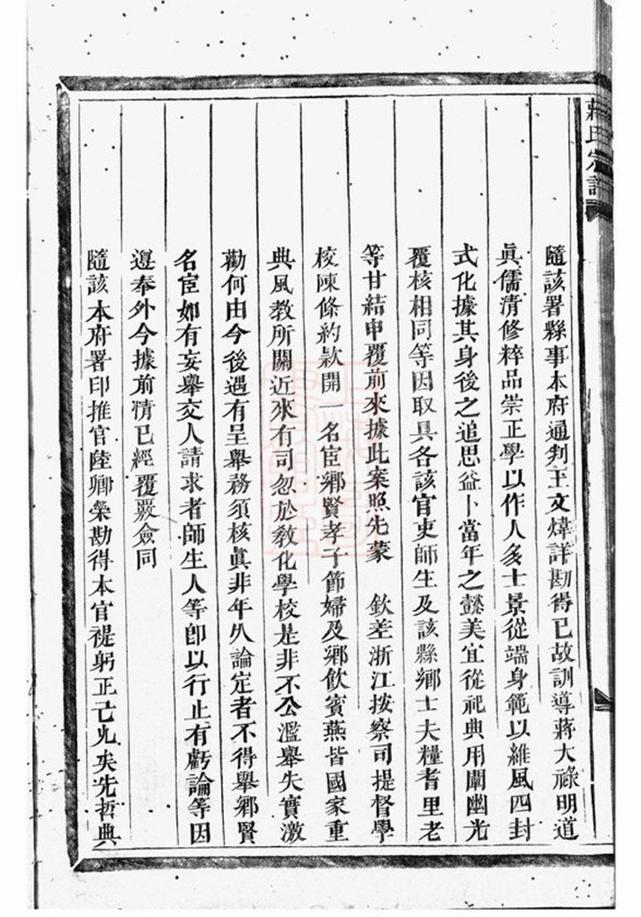 蔣氏宗譜
隨該署縣事本府通判王文煒詳勘得已故訓導蔣大祿明道
眞儒清修粹品崇正學以作人多士景從端身範以維風四封
式化據其身後之追思益卜當年之懿美宜從祀典用闡幽光
覆核相同等因取具各該官吏師生及該縣鄉士夫糧耆里老
等甘結申覆前來據此案照先蒙　欽差浙江按察司提督學
校陳條約款開一名宦鄉賢孝子節婦及鄉飲賓燕皆國家重
典風教所關近來有司忽於敎化學校是非不公濫舉失實激
勸何由今後遇有呈舉務須核眞非年久論定者不得舉鄉賢
名宦如有妄舉交人請求者師生人等卽以行止有虧論等因
遵奉外今據前情已經覆覈僉同
隨該本府署印推官陸卿榮勘得本官禔躬正己允矣先哲典